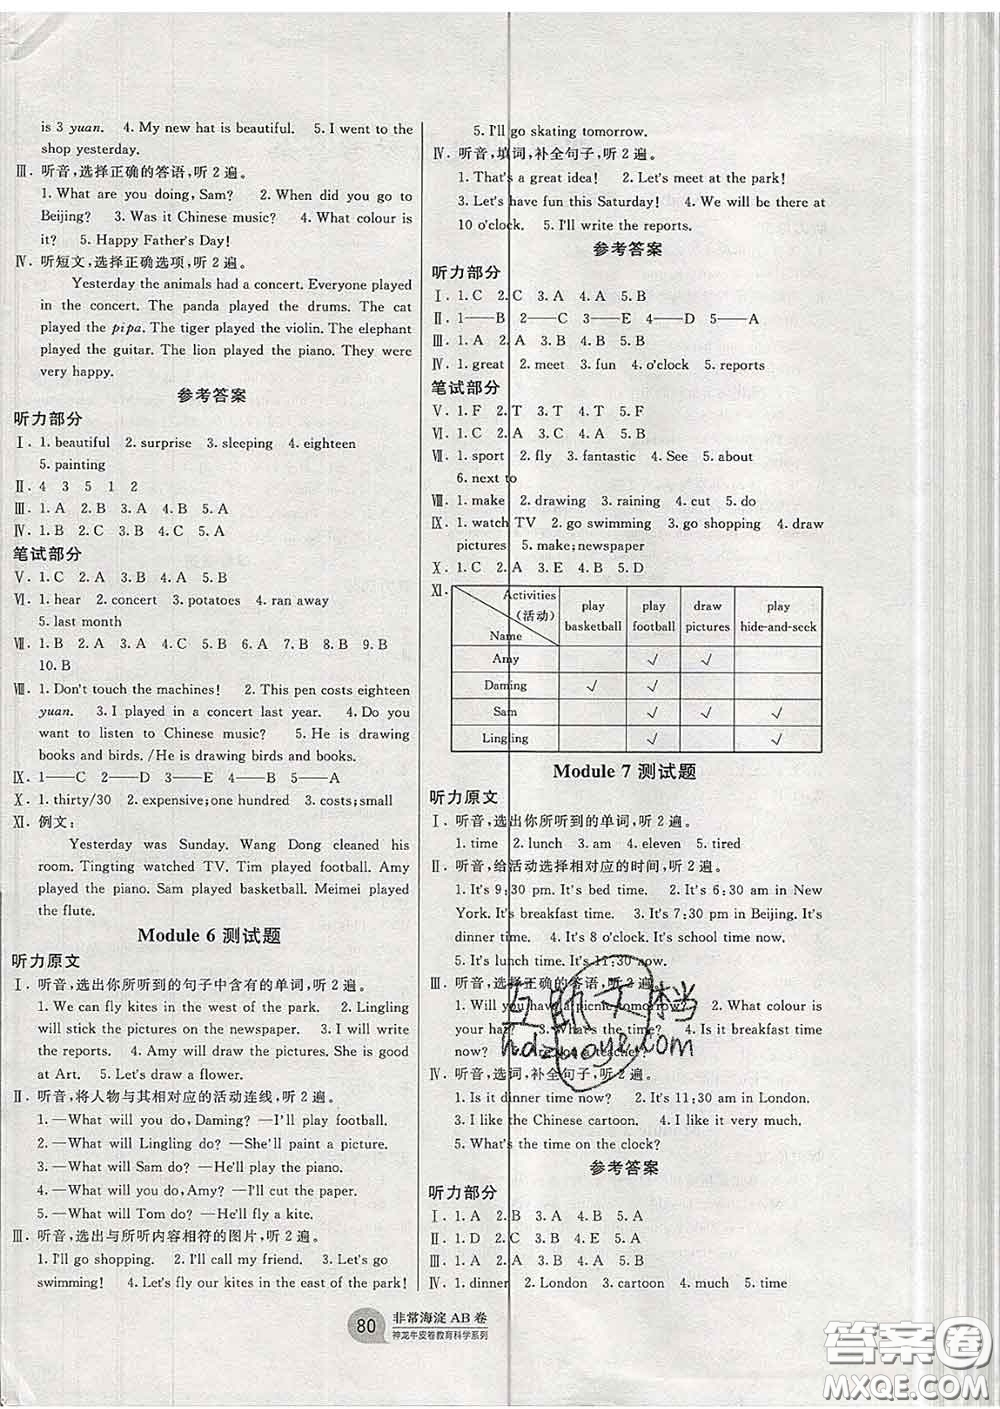 is 3 yuan. 4. My new hat is beautiful. 5. I went to the
shop yesterday.
Ⅲ. 听音,选择正确的答语,听 2 遍。
1. What are you doing, Sam? 2. When did you go to
Beijing? 3. Was it Chinese music? 4. What colour is
it? 5. Happy Father's Day!
Ⅳ. 听短文,选择正确选项,听 2 遍。
Yesterday the animals had a concert. Everyone played
in the concert. The panda played the drums. The cat
played the pipa. The tiger played the violin. The elephant
played the guitar. The lion played the piano. They were
very happy.
参考答案
听力部分
Ⅰ. 1. beautiful 2. surprise 3. sleeping 4. eighteen
5. painting
Ⅱ. 4 3 5 1 2
Ⅲ. 1. A 2. B 3. A 4. B 5. A
Ⅳ. 1. B 2. C 3. B 4. C 5. A
笔试部分
Ⅴ. 1. C 2. A 3. B 4. A 5. B
Ⅵ. 1. hear 2. concert 3. potatoes 4. ran away
5. last month
Ⅶ. 1. B 2. A 3. A 4. B 5. B 6. A 7. B 8. B 9. B
10. B
Ⅷ. 1. Don't touch the machines! 2. This pen costs eighteen
yuan. 3. I played in a concert last year. 4. Do you
want to listen to Chinese music? 5. He is drawing
books and birds. /He is drawing birds and books.
Ⅸ. 1——C 2——D 3——E 4——B 5——A
Ⅹ. 1. thirty/30 2. expensive;one hundred 3. costs;small
Ⅺ. 例文:
Yesterday was Sunday. Wang Dong cleaned his
room. Tingting watched TV. Tim played football. Amy
played the piano. Sam played basketball. Meimei played
the flute.
Module 6 测试题
听力原文
Ⅰ. 听音,选出你所听到的句子中含有的单词,听 2 遍。
1. We can fly kites in the west of the park. 2. Lingling
will stick the pictures on the newspaper. 3. I will write
the reports. 4. Amy will draw the pictures. She is good
at Art. 5. Let's draw a flower.
Ⅱ. 听音,将人物与其相对应的活动连线,听 2 遍。
1. —What will you do, Daming? —I'll play football.
2. —What will Lingling do? —She'll paint a picture.
3. —What will Sam do? —He'll play the piano.
4. —What will you do, Amy? —I'll cut the paper.
5. —What will Tom do? —He'll fly a kite.
Ⅲ. 听音,选出与所听内容相符的图片,听 2 遍。
1. I'll go shopping. 2. I'll call my friend. 3. Let's go
swimming! 4. Let's fly our kites in the east of the park!
5. I'll go skating tomorrow.
Ⅳ. 听音,填词,补全句子,听 2 遍。
1. That's a great idea! 2. Let's meet at the park!
3. Let's have fun this Saturday! 4. We will be there at
10 o'clock. 5. I'll write the reports.
参考答案
听力部分
Ⅰ. 1. C 2. C 3. A 4. A 5. B
Ⅱ. 1——B 2——C 3——E 4——D 5——A
Ⅲ. 1. A 2. A 3. B 4. A 5. B
Ⅳ. 1. great 2. meet 3. fun 4. o'clock 5. reports
笔试部分
Ⅴ. 1. F 2. T 3. T 4. T 5. F
Ⅵ. 1. C 2. A 3. C 4. B 5. A
Ⅶ. 1. sport 2. fly 3. fantastic 4. See 5. about
6. next to
Ⅷ. 1. make 2. drawing 3. raining 4. cut 5. do
Ⅸ. 1. watch TV 2. go swimming 3. go shopping 4. draw
pictures 5. make;newspaper
Ⅹ. 1. C 2. A 3. E 4. B 5. D
Ⅺ.
Activities (活动) Name play basketball play football draw pictures play hide-and-seek
Amy √ √
Daming √ √
Sam √ √ √
Lingling √ √
Module 7 测试题
听力原文
Ⅰ. 听音,选出你所听到的单词,听 2 遍。
1. time 2. lunch 3. am 4. eleven 5. tired
Ⅱ. 听音,给活动选择相对应的时间,听 2 遍。
1. It's 9:30 pm. It's bed time. 2. It's 6:30 am in New
York. It's breakfast time. 3. It's 7:30 pm in Beijing. It's
dinner time. 4. It's 8 o'clock. It's school time now.
5. It's lunch time now. It's 11:30 am.
Ⅲ. 听音,选择正确的答语,听 2 遍。
1. Will you have a picnic tomorrow? 2. What colour is
your hat? 3. What's the time? 4. Is it breakfast time
now? 5. Are you a teacher?
Ⅳ. 听音,选词,补全句子,听 2 遍。
1. Is it dinner time now? 2. It's 11:30 am in London.
3. I like the Chinese cartoon. 4. I like it very much.
5. What's the time on the clock?
参考答案
听力部分
Ⅰ. 1. A 2. B 3. A 4. A 5. B
Ⅱ. 1. D 2. C 3. B 4. E 5. A
Ⅲ. 1. A 2. A 3. B 4. A 5. A
Ⅳ. 1. dinner 2. London 3. cartoon 4. much 5. time
80 非常海淀 AB 卷
神龙牛皮卷教育科学系列
答案圈
MXQE.COM